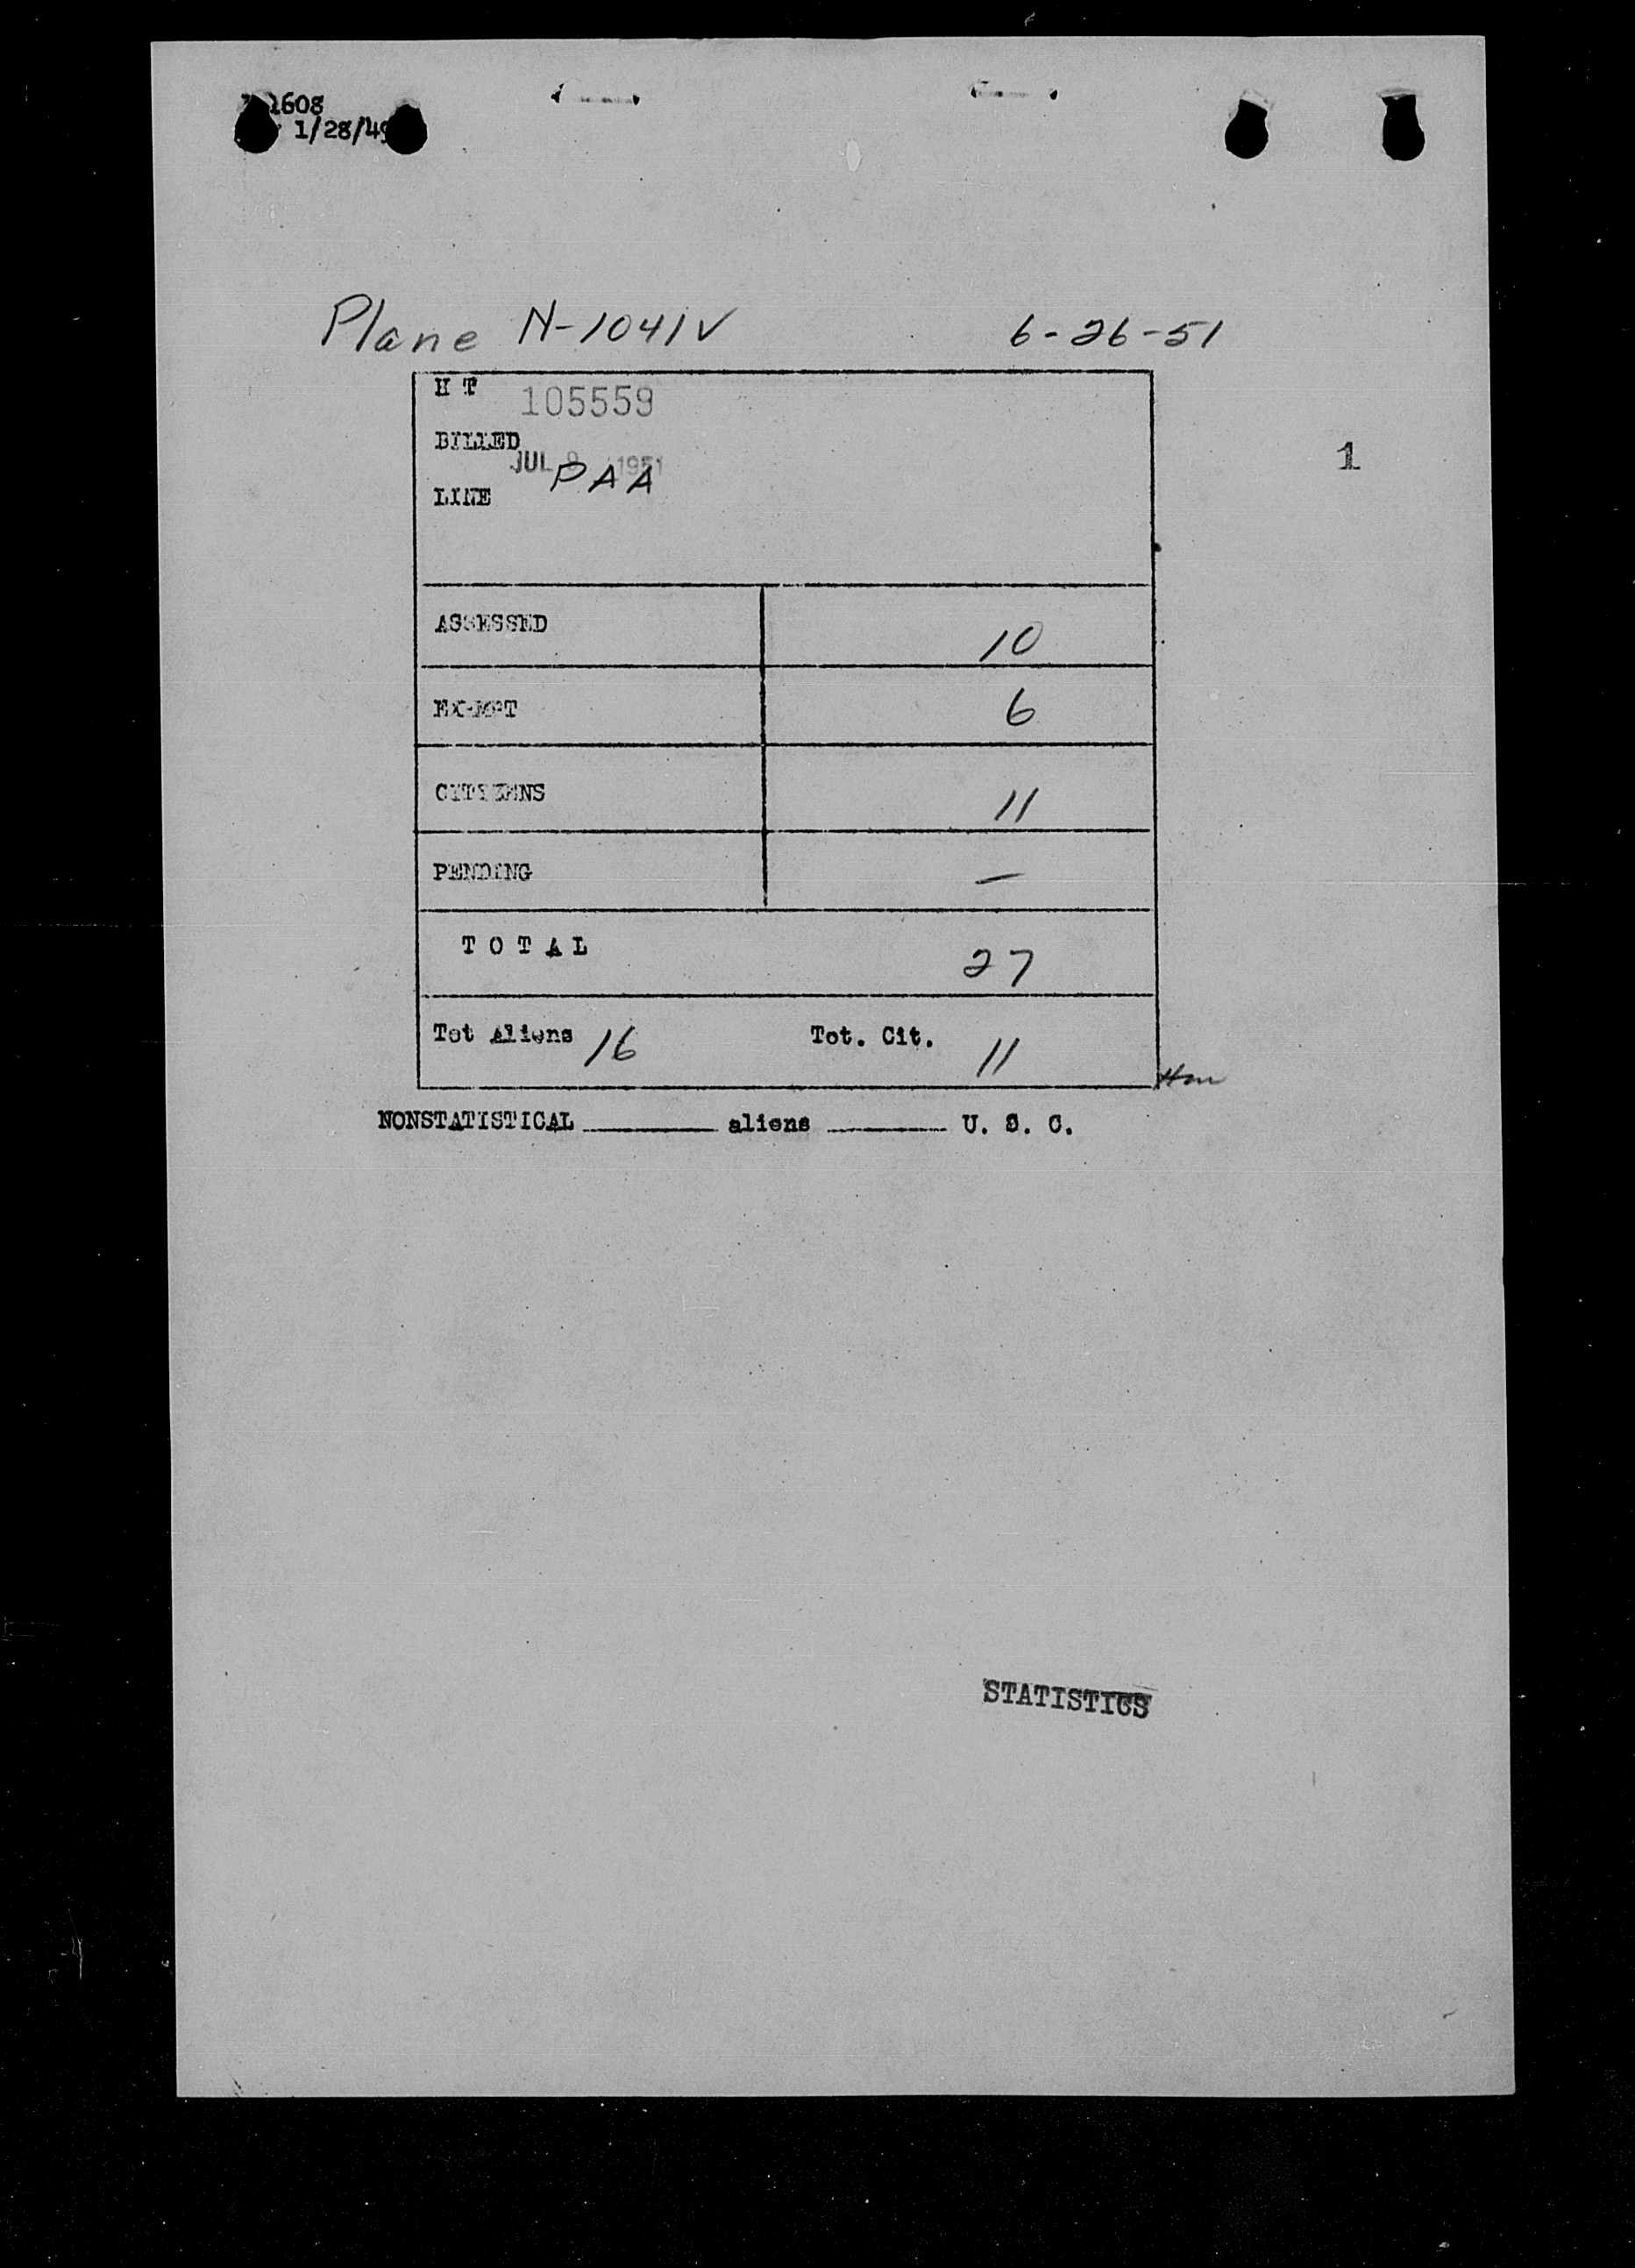 1608
1/28/49
Plane N-1041V 6-26-51
H T 105559
BILLED
JUL 1951
1
LINE PAA
ASSESSED 10
EXEMPT 6
CITIZENS 11
PENDING —
TOTAL 27
Tot Aliens 16 Tot. Cit. 11
NONSTATISTICAL ______ aliens ______ U. S. C.
STATISTICS